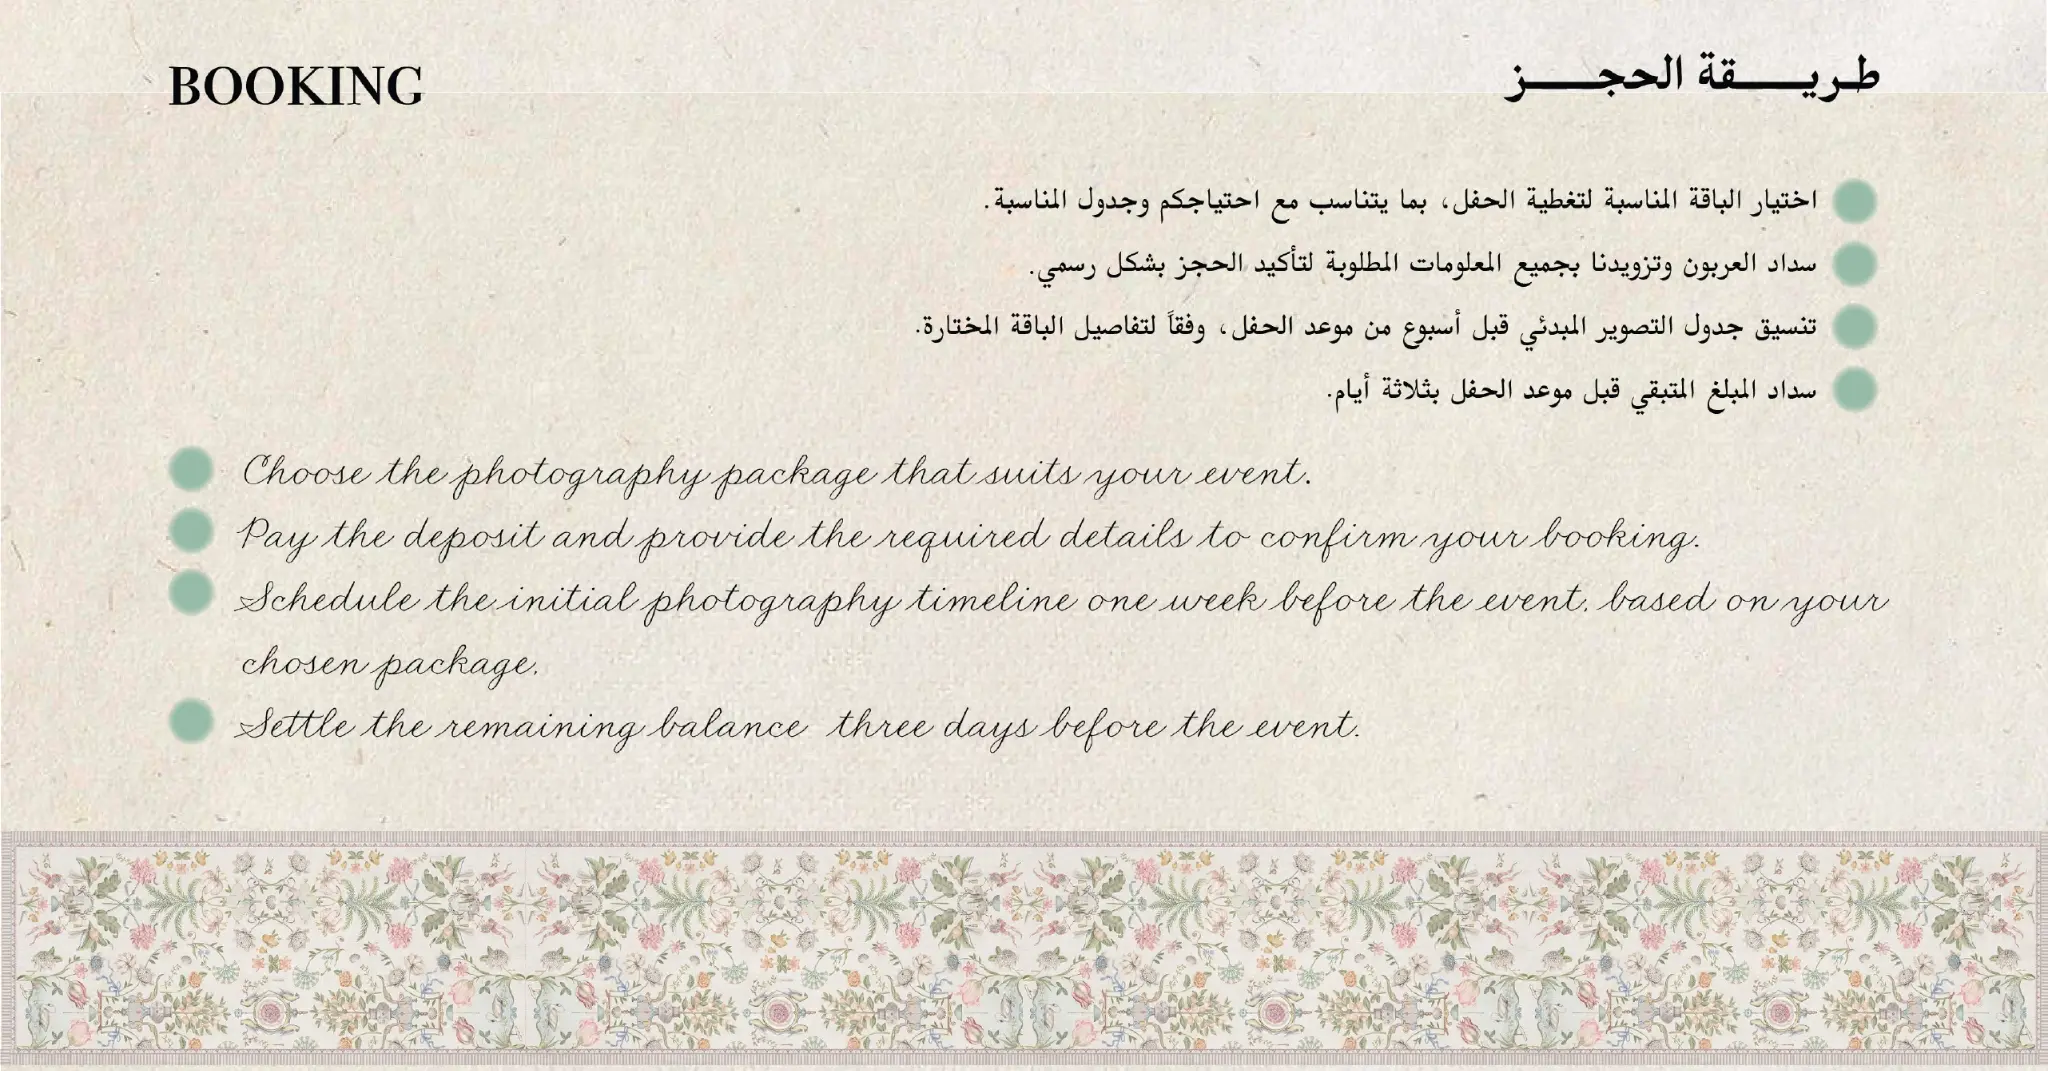 BOOKING
طريقة الحجز
اختيار الباقة المناسبة لتغطية الحفل، بما يتناسب مع احتياجكم وجدول المناسبة.
سداد العربون وتزويدنا بجميع المعلومات المطلوبة لتأكيد الحجز بشكل رسمي.
تنسيق جدول التصوير المبدئي قبل أسبوع من موعد الحفل، وفقاً لتفاصيل الباقة المختارة.
سداد المبلغ المتبقي قبل موعد الحفل بثلاثة أيام.
Choose the photography package that suits your event.
Pay the deposit and provide the required details to confirm your booking.
Schedule the initial photography timeline one week before the event, based on your
chosen package.
Settle the remaining balance three days before the event.